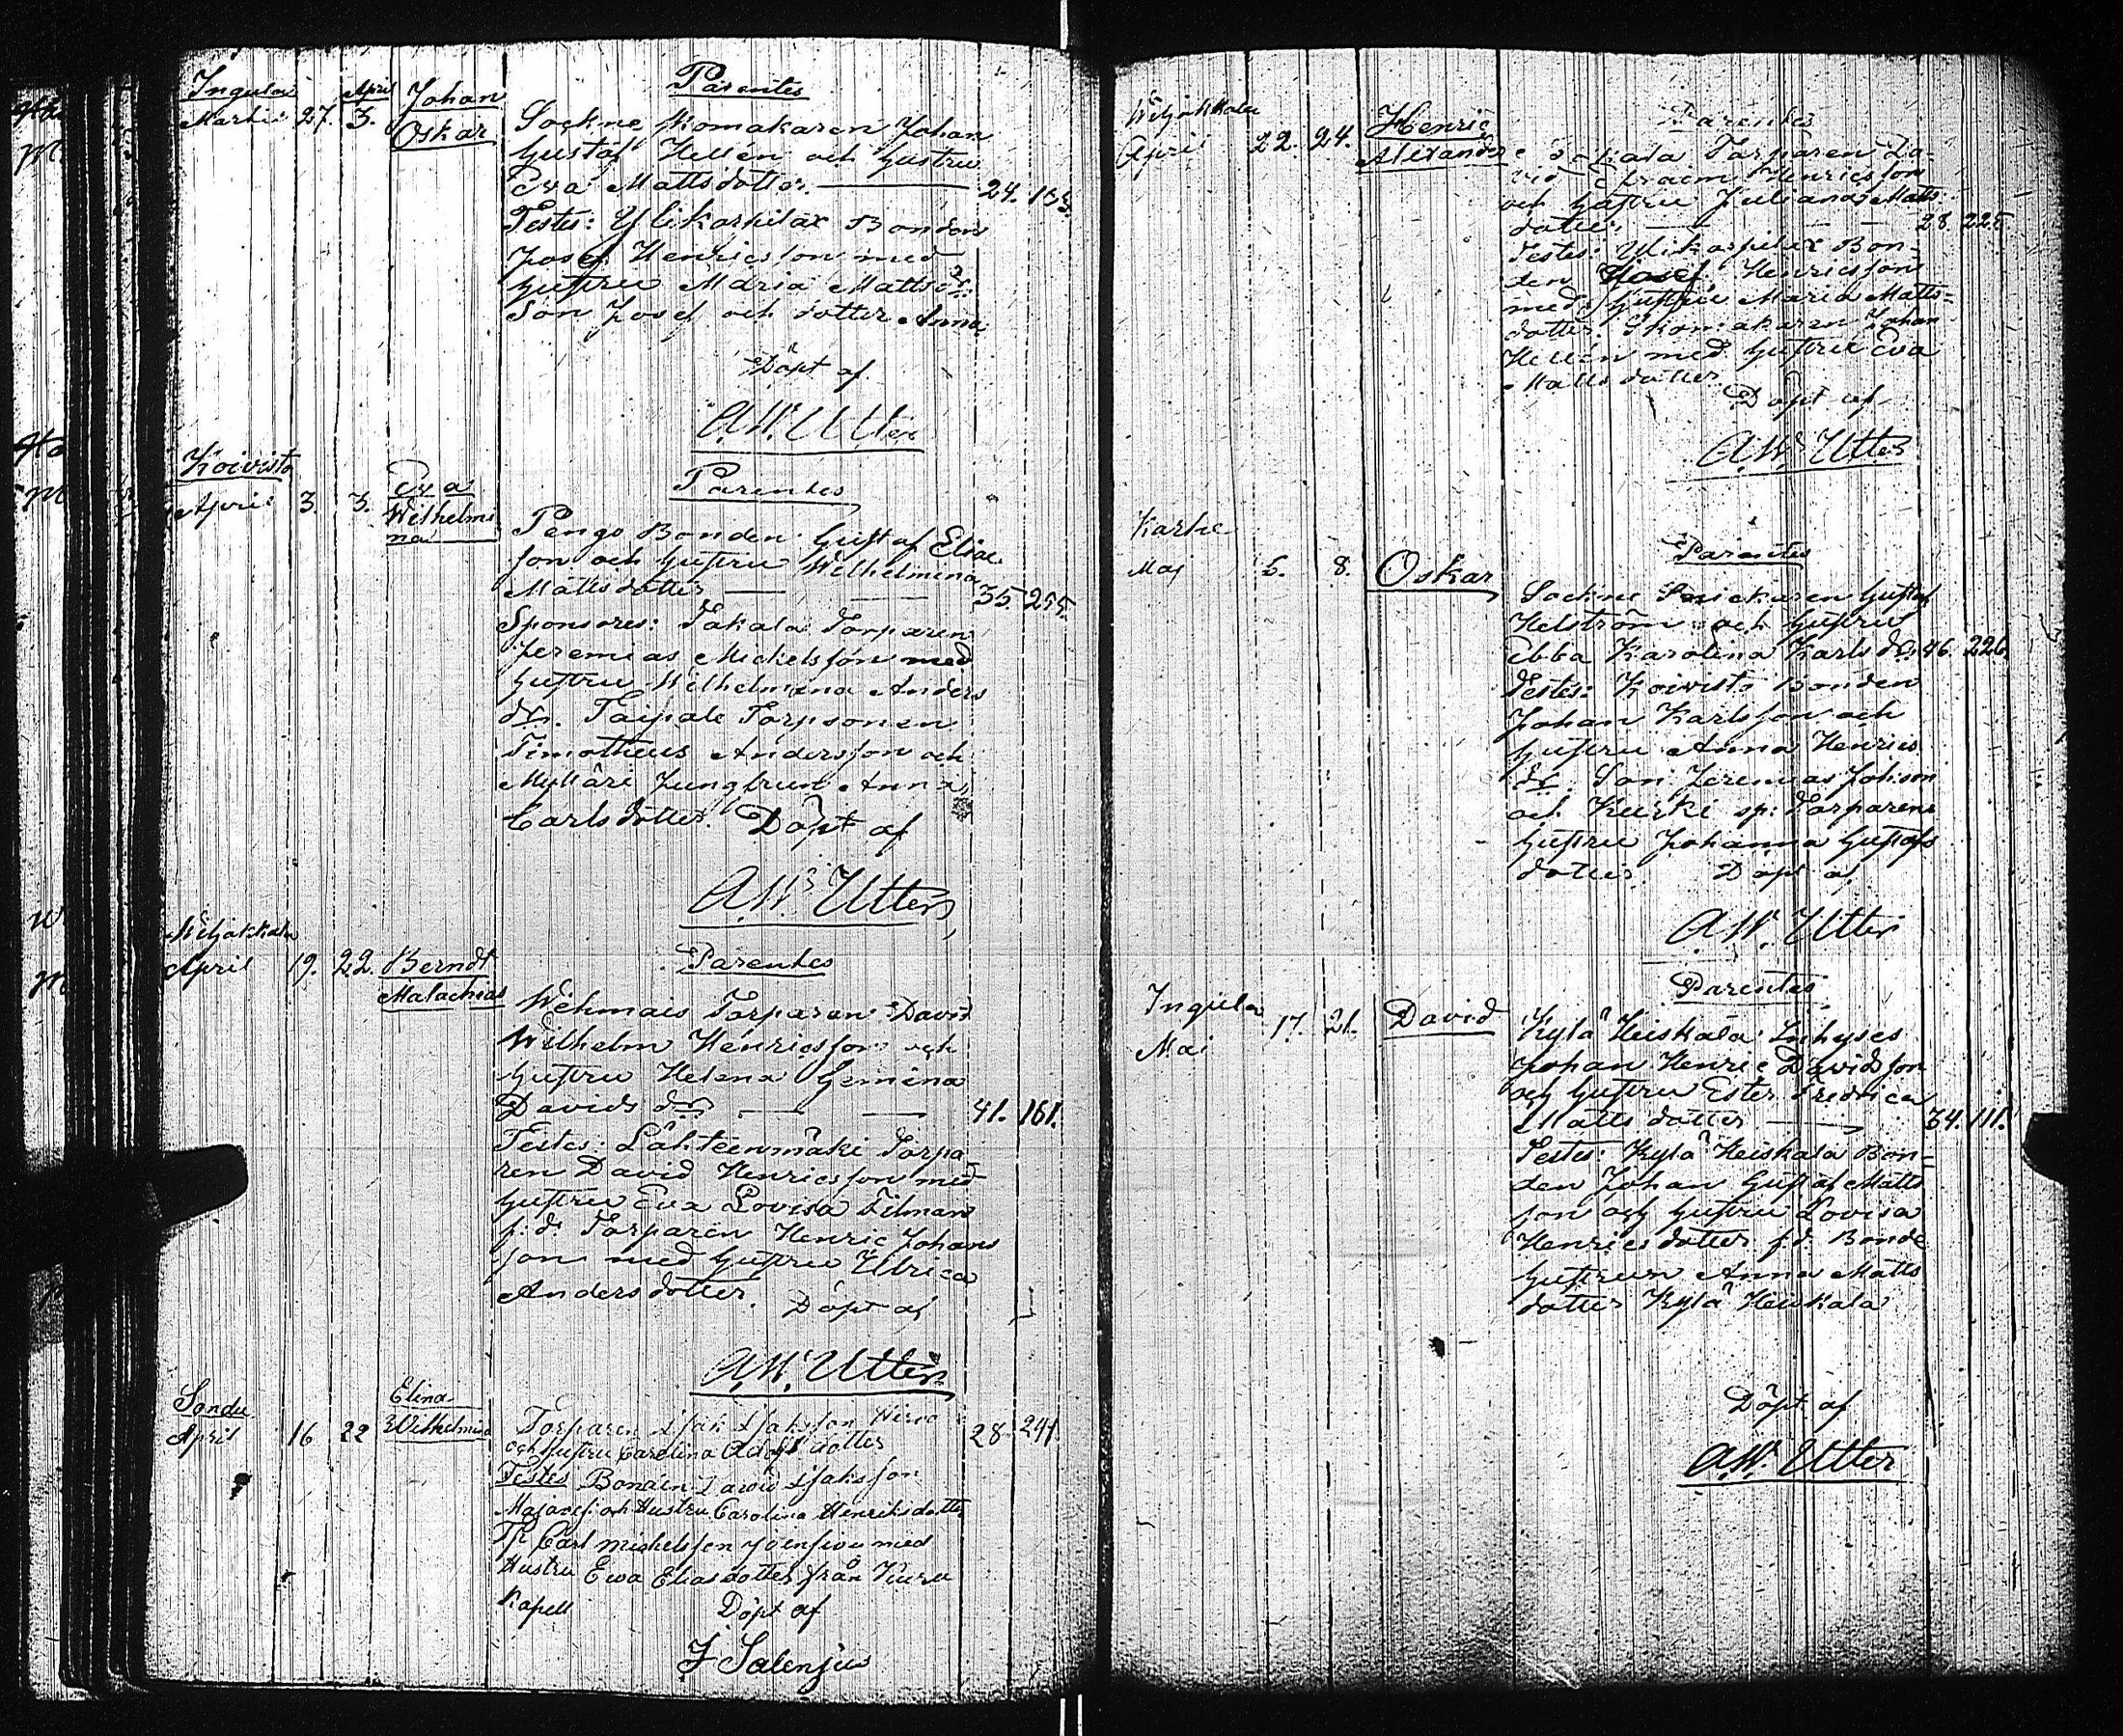 Parentes
Ingula April Johan
Martii 27. 3. Oskar
Sockne skomakaren Johan
Gustaf Hellén och hustru
Eva Mattsdotter. 24. 133.
Testes: Ylikarhilax Bonden
Josef Henricsson med
hustru Maria Mattsdr.
Son Josef och dotter Anna
Döpt af
A.W. Utter
Koivisto
April 3 3. Eva
Wilhelmi
na
Parentes
Pengo Bonden Gustaf Elias
son och hustru Wilhelmina
Mattsdotter 35. 255.
Sponsores: Takala Torparen
Jeremias Mickelsson med
hustru Wilhelmina Anders
dr. Taipale Torpsonen
Timotheus Andersson och
Mylläri Jungfrun Anna
Carlsdotter. Döpt af
A.W. Utter
Wiljakkala
April 19. 22. Berndt
Malachias
Parentes
Wehmais Torparen David
Wilhelm Henricsson och
hustru Helena Gemina
Davids dr 41. 161.
Testes: Lähteenmäki Torpa
ren David Henricsson med
hustru Eva Lovisa Tilman
f.d. Torparen Henric Johans
son med hustru Ulrica
Andersdotter. Döpt af
A.W. Utter
Sondu Elina
April 16 22 Wilhelmina
Torparen Isak Isaksson
och hustru Carolina Adolfsdotter 28. 241.
Testes Bonden David Isaksson
och Hustru Carolina Henriksdotter
Carl Michelsson med
Hustru Ewa Eliasdotter från
Kapell Döpt af
F Salenius
Wiljakkala
April 22. 24. Henric
Alexander
Parentes
Torparen Da-
vid Efraim Henricsson
och hustru Juliana Matts
dotter. 28. 225.
Testes: Ylikarhilax Bon-
den Josef Henricsson
med hustru Maria Matts-
dotter. Skomakaren Johan
Hellén med hustru Eva
Mattsdotter.
Döpt af
A.W. Utter
Karhe
Maj 5. 8. Oskar
Parentes
Sockne Snickaren Gustaf
Helström och hustru
Ebba Karolina Karls dr. 46. 226.
Testes: Koivisto Bonden
Johan Karlsson och
hustru Anna Henrics
dr. Son Jeremias Johsson
och Kurki sp: Torparens
hustru Johanna Gustafs
dotter. Döpt af
A.W. Utter
Parentes
Ingula
Maj 17. 21. David
Kylä Heiskala Inhyses
Johan Henric Davidsson
och hustru Ester Fredrica
Matts dotter 34. 111.
Testes: Kylä Heiskala Bon-
den Johan Gustaf Matts
son och hustru Lovisa
Henricsdotter f.d. Bonde
hustrun Anna Matts
dotter Kylä Heiskala
Döpt af
A.W. Utter